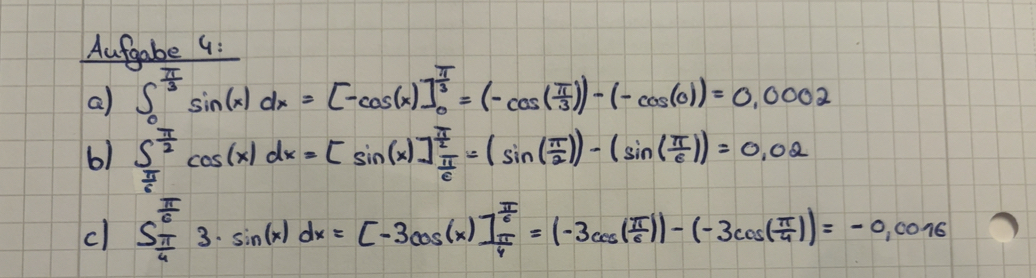 Aufgabe 4:
a) ∫₀^(π/3) sin(x) dx = [-cos(x)]₀^(π/3) = (-cos(π/3)) - (-cos(0)) = 0,0002
b) ∫_(π/6)^(π/2) cos(x) dx = [sin(x)]_(π/6)^(π/2) = (sin(π/2)) - (sin(π/6)) = 0,02
c) ∫_(π/4)^(π/6) 3 · sin(x) dx = [-3cos(x)]_(π/4)^(π/6) = (-3cos(π/6)) - (-3cos(π/4)) = -0,0016